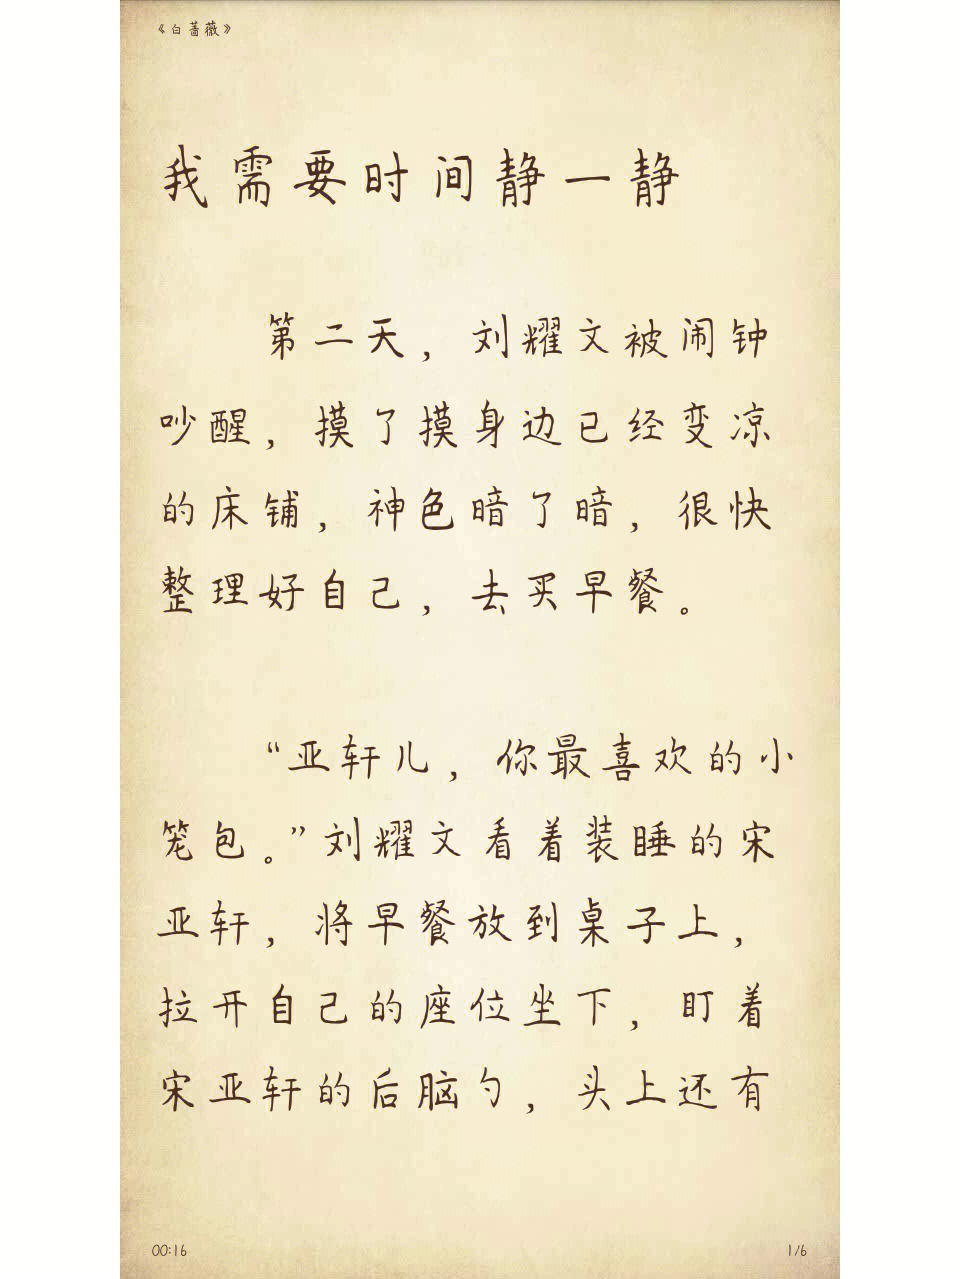 《白蔷薇》
我需要时间静一静
第二天，刘耀文被闹钟
吵醒，摸了摸身边已经变凉
的床铺，神色暗了暗，很快
整理好自己，去买早餐。
“亚轩儿，你最喜欢的小
笼包。”刘耀文看着装睡的宋
亚轩，将早餐放到桌子上，
拉开自己的座位坐下，盯着
宋亚轩的后脑勺，头上还有
00:16
1/6